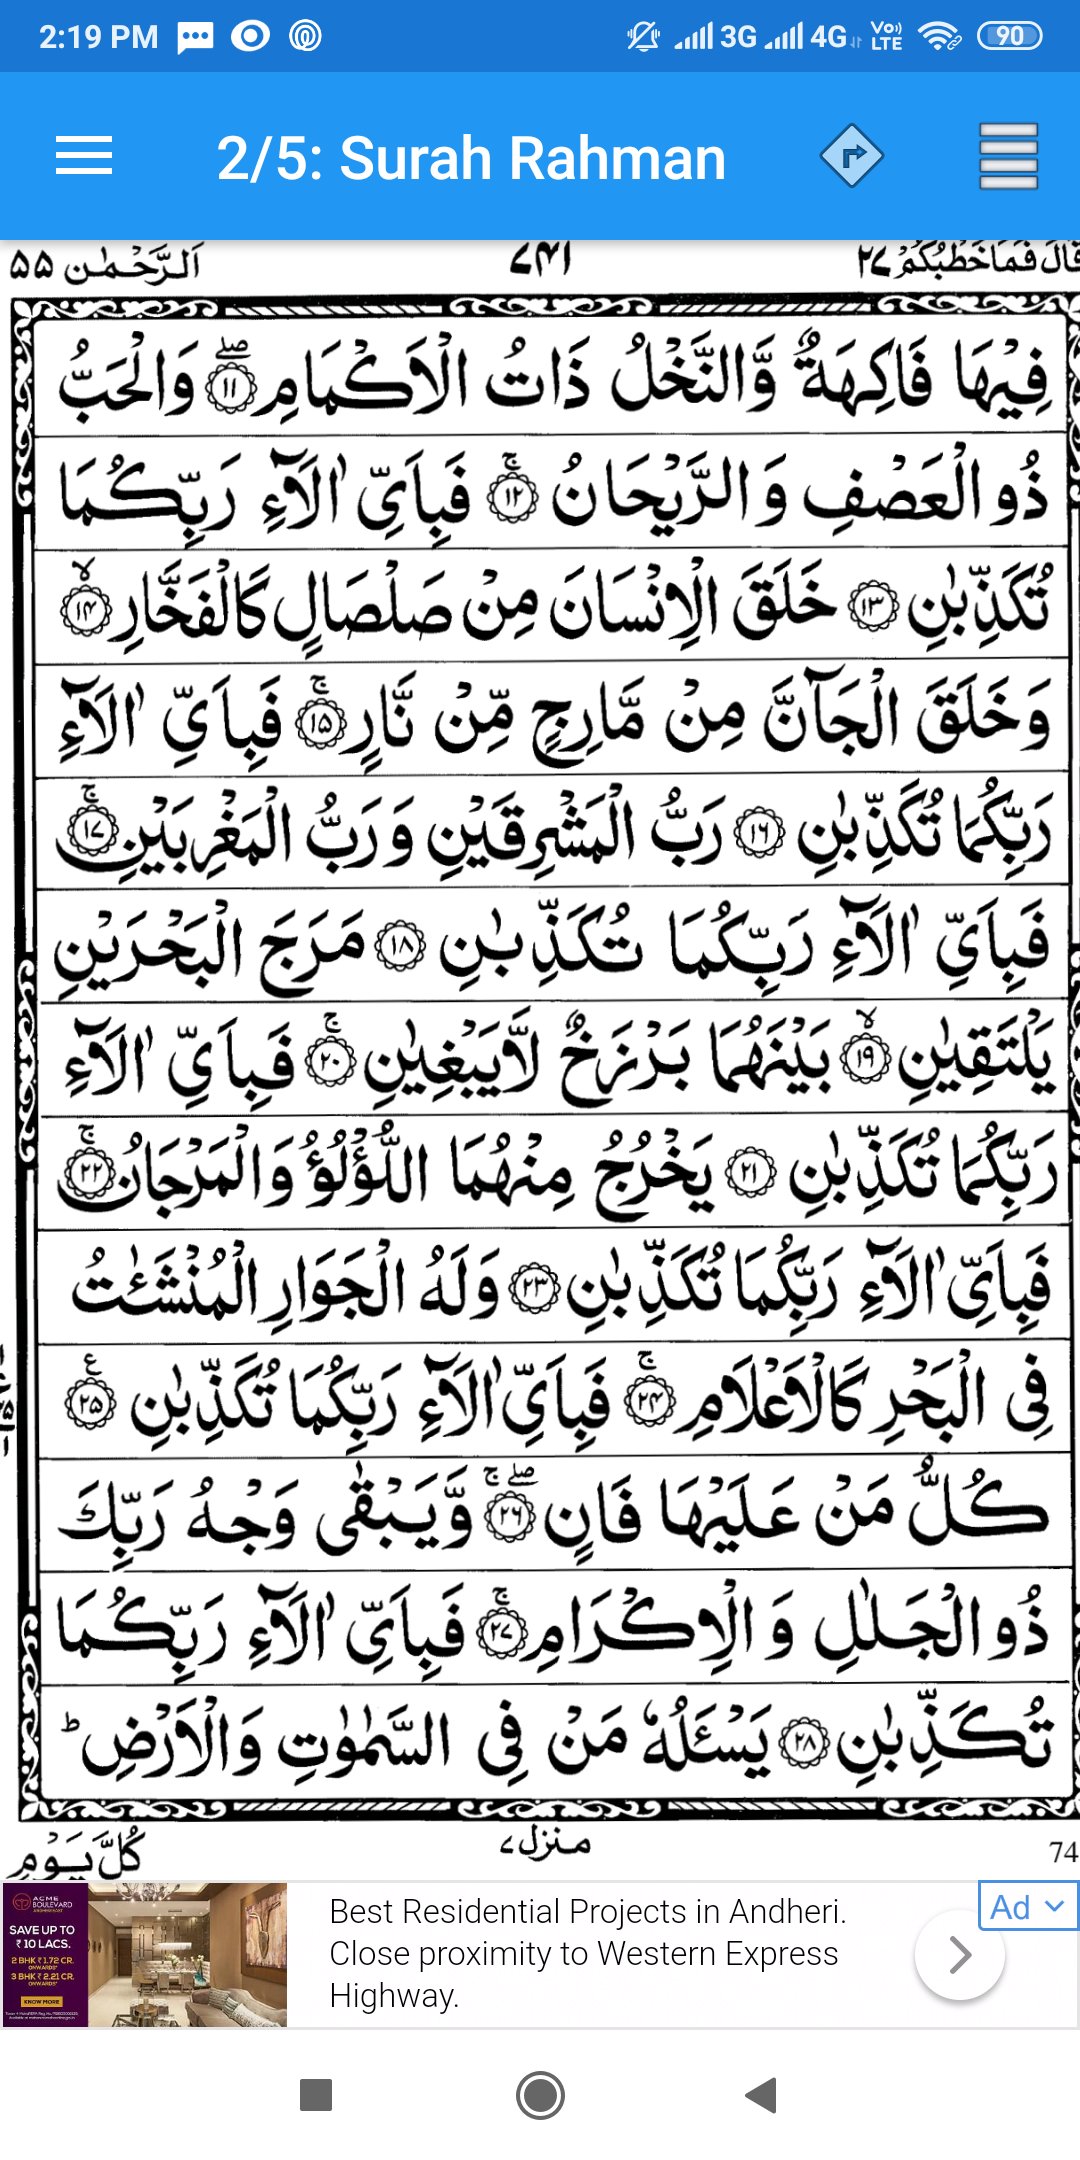 2:19 PM 3G 4G Vo)) LTE 90
2/5: Surah Rahman
قَالَ فَمَا خَطْبُكُمْ ٢٧ ٧٤١ اَلرَّحْمٰن ٥٥
فِيْهَا فَاكِهَةٌ وَّالنَّخْلُ ذَاتُ الْاَكْمَامِ ۖ ﴿١١﴾ وَالْحَبُّ
ذُو الْعَصْفِ وَالرَّيْحَانُ ۚ ﴿١٢﴾ فَبِاَيِّ اٰلَآءِ رَبِّكُمَا
تُكَذِّبٰنِ ﴿١٣﴾ خَلَقَ الْاِنْسَانَ مِنْ صَلْصَالٍ كَالْفَخَّارِ ۙ ﴿١٤﴾
وَخَلَقَ الْجَآنَّ مِنْ مَّارِجٍ مِّنْ نَّارٍ ۚ ﴿١٥﴾ فَبِاَيِّ اٰلَآءِ
رَبِّكُمَا تُكَذِّبٰنِ ﴿١٦﴾ رَبُّ الْمَشْرِقَيْنِ وَرَبُّ الْمَغْرِبَيْنِ ۚ ﴿١٧﴾
فَبِاَيِّ اٰلَآءِ رَبِّكُمَا تُكَذِّبٰنِ ﴿١٨﴾ مَرَجَ الْبَحْرَيْنِ
يَلْتَقِيٰنِ ۙ ﴿١٩﴾ بَيْنَهُمَا بَرْزَخٌ لَّايَبْغِيٰنِ ۚ ﴿٢٠﴾ فَبِاَيِّ اٰلَآءِ
رَبِّكُمَا تُكَذِّبٰنِ ﴿٢١﴾ يَخْرُجُ مِنْهُمَا اللُّؤْلُؤُ وَالْمَرْجَانُ ۚ ﴿٢٢﴾
فَبِاَيِّ اٰلَآءِ رَبِّكُمَا تُكَذِّبٰنِ ﴿٢٣﴾ وَلَهُ الْجَوَارِ الْمُنْشَئٰتُ
فِى الْبَحْرِ كَالْاَعْلَامِ ۚ ﴿٢٤﴾ فَبِاَيِّ اٰلَآءِ رَبِّكُمَا تُكَذِّبٰنِ ﴿٢٥﴾ ع
كُلُّ مَنْ عَلَيْهَا فَانٍ ۖۚ ﴿٢٦﴾ وَّيَبْقٰى وَجْهُ رَبِّكَ
ذُو الْجَلٰلِ وَالْاِكْرَامِ ۚ ﴿٢٧﴾ فَبِاَيِّ اٰلَآءِ رَبِّكُمَا
تُكَذِّبٰنِ ﴿٢٨﴾ يَسْـَٔلُهٗ مَنْ فِى السَّمٰوٰتِ وَالْاَرْضِ ؕ
كُلَّ يَوْمٍ منزل ٧ 74
ACME BOULEVARD
SAVE UP TO
₹ 10 LACS.
2 BHK ₹ 1.72 CR. ONWARDS*
3 BHK ₹ 2.21 CR. ONWARDS*
KNOW MORE
Best Residential Projects in Andheri.
Close proximity to Western Express
Highway.
Ad